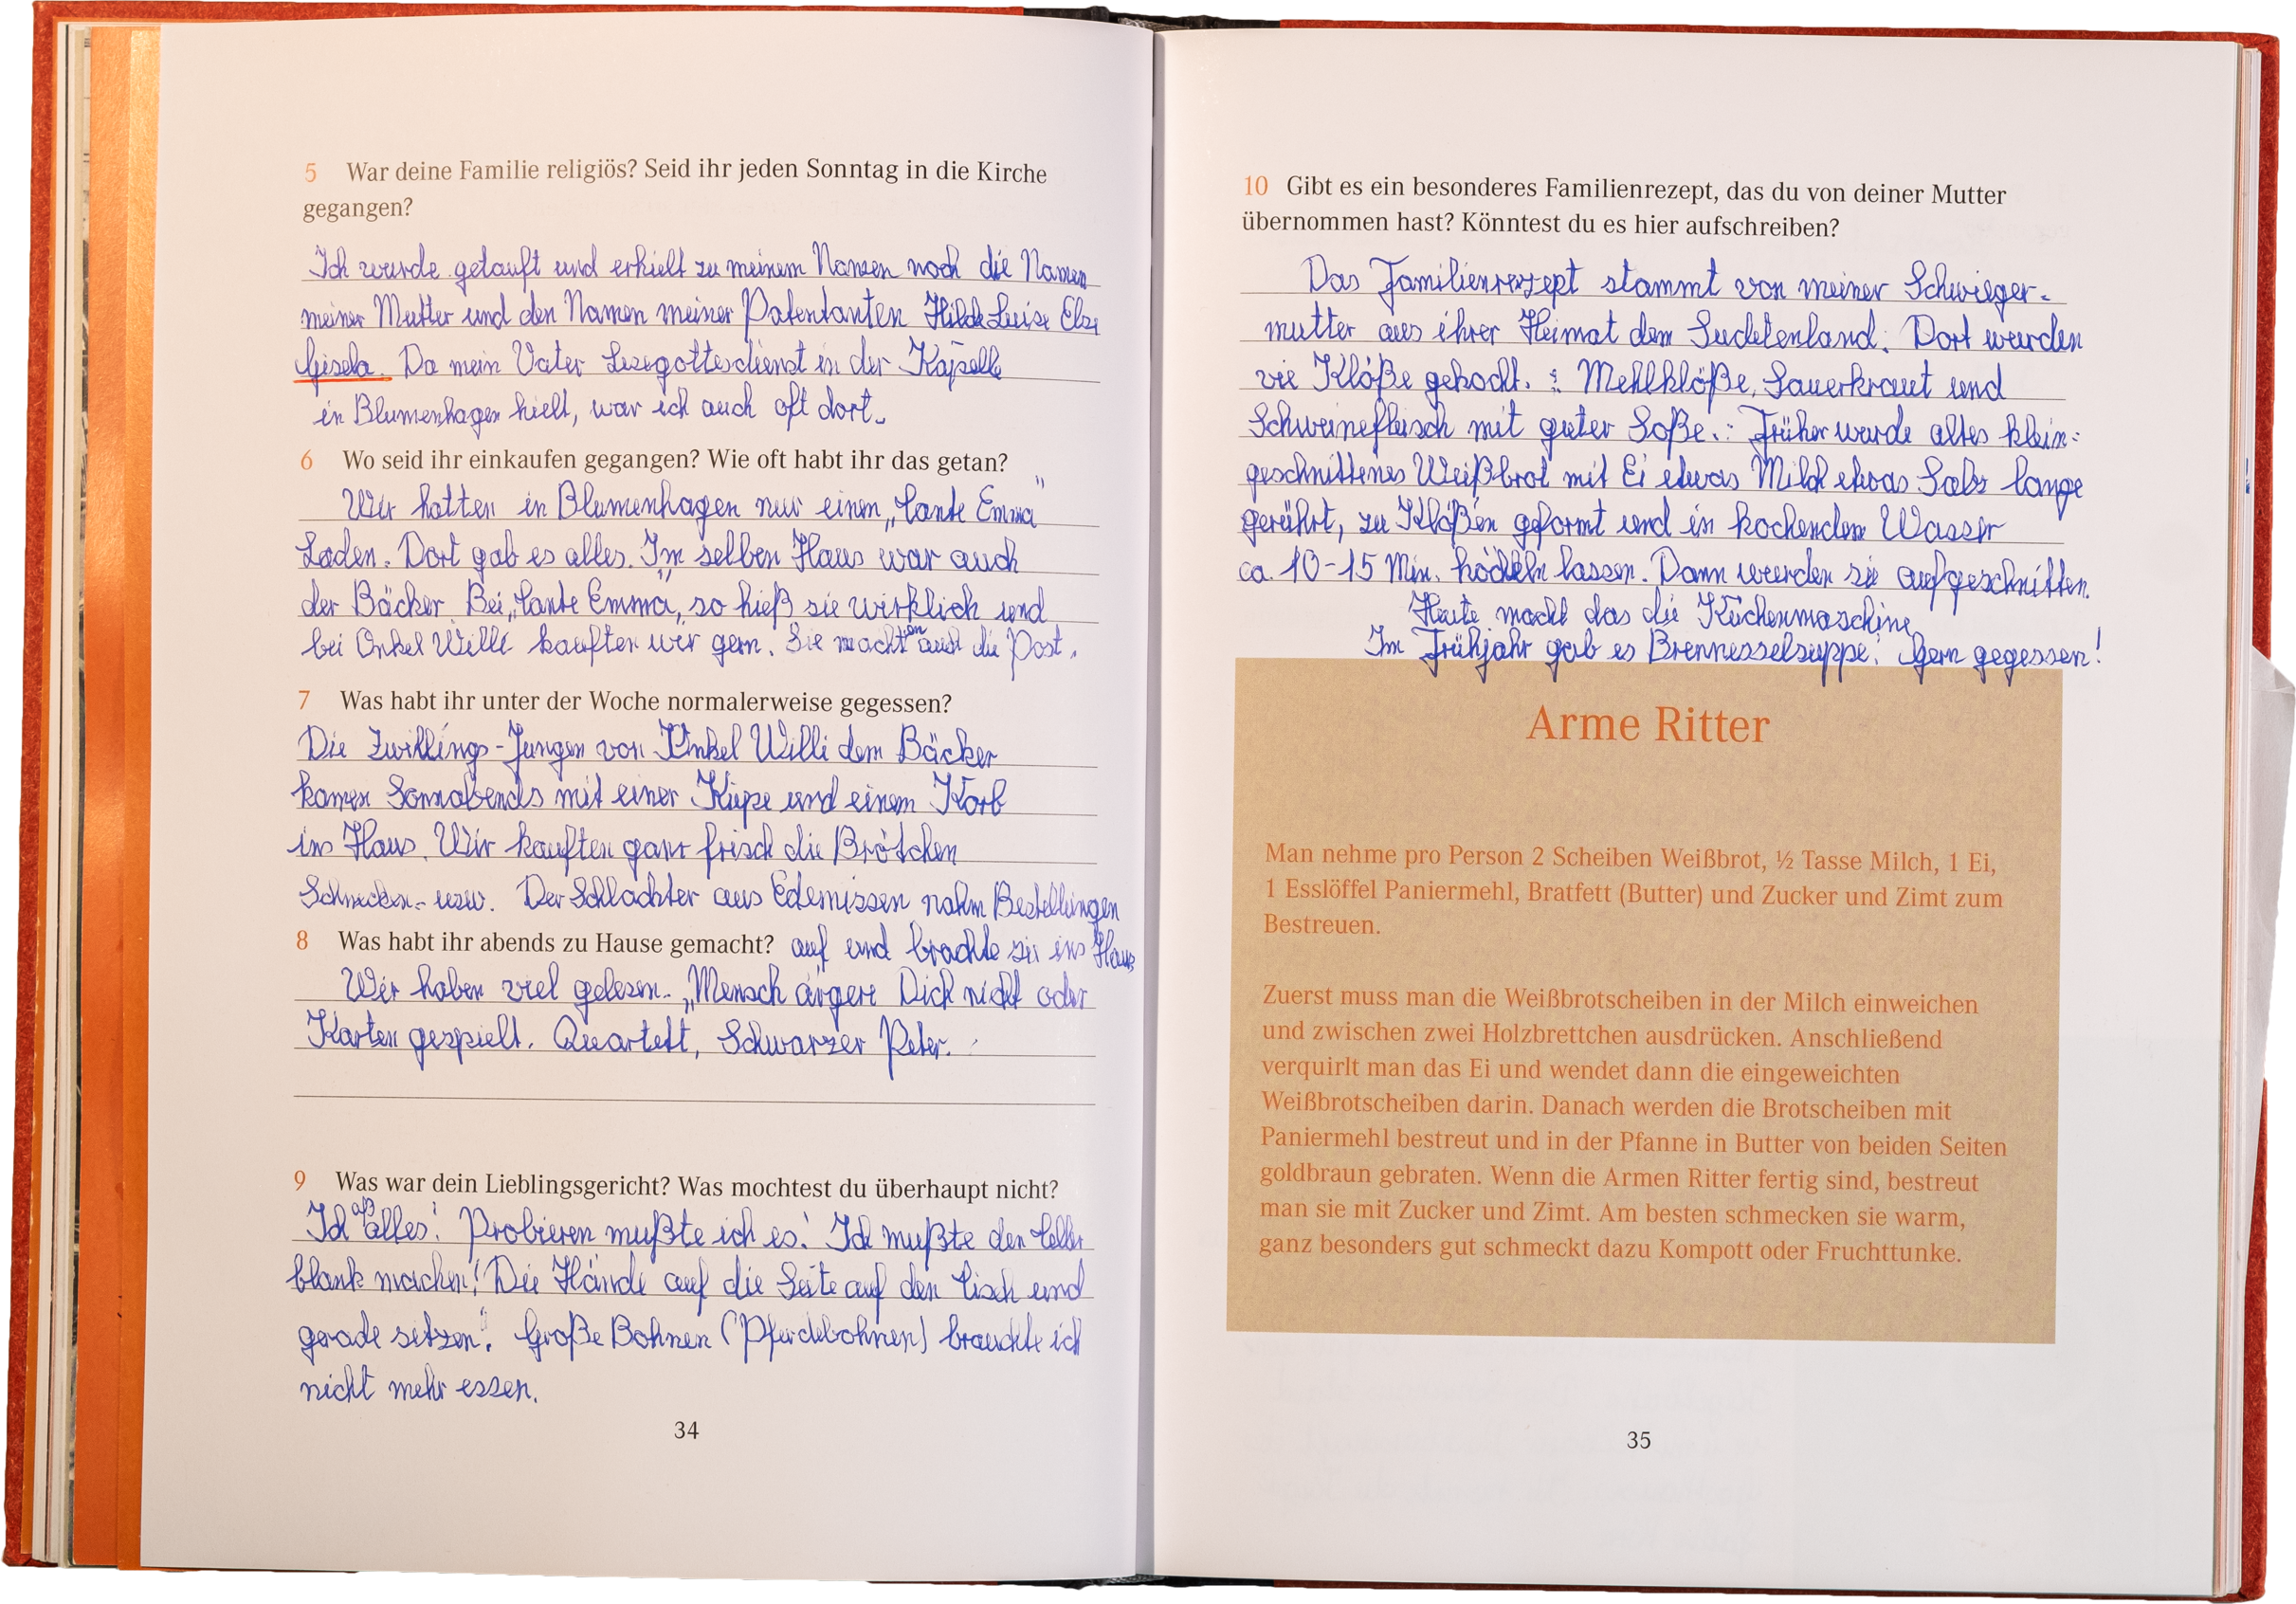 5 War deine Familie religiös? Seid ihr jeden Sonntag in die Kirche
gegangen?
Ich wurde getauft und erhielt zu meinem Namen noch die Namen
meiner Mutter und den Namen meiner Patentanten Hilde Luise Else
Gisela. Da mein Vater Lesegottesdienst in der Kapelle
in Blumenhagen hielt, war ich auch oft dort.
6 Wo seid ihr einkaufen gegangen? Wie oft habt ihr das getan?
Wir hatten in Blumenhagen nur einen „Tante Emma"
Laden. Dort gab es alles. Im selben Haus war auch
der Bäcker. Bei „Tante Emma„ so hieß sie wirklich und
bei Onkel Willi kauften wir gern. Sie machten auch die Post.
7 Was habt ihr unter der Woche normalerweise gegessen?
Die Zwillings-Jungen von Onkel Willi dem Bäcker
kamen Sonnabends mit einer Kiepe und einem Korb
ins Haus. Wir kauften ganz frisch die Brötchen
Schnecken- usw. Der Schlachter aus Edemissen nahm Bestellungen
8 Was habt ihr abends zu Hause gemacht? auf und brachte sie ins Haus
Wir haben viel gelesen. „Mensch ärgere Dich nicht oder
Karten gespielt. Quartett, Schwarzer Peter.
9 Was war dein Lieblingsgericht? Was mochtest du überhaupt nicht?
Ich aß alles! Probieren mußte ich es! Ich mußte den Teller
blank machen! Die Hände auf die Seite auf den Tisch und
gerade sitzen! Große Bohnen (Pferdebohnen) brauchte ich
nicht mehr essen.
34
10 Gibt es ein besonderes Familienrezept, das du von deiner Mutter
übernommen hast? Könntest du es hier aufschreiben?
Das Familienrezept stammt von meiner Schwieger-
mutter aus ihrer Heimat dem Sudetenland. Dort wurden
vie Klöße gekocht. : Mehlklöße, Sauerkraut und
Schweinefleisch mit guter Soße.: Früher wurde altes klein=
geschnittenes Weißbrot mit Ei etwas Milch etwas Salz lange
gerührt, zu Klößen geformt und in kochendem Wasser
ca. 10-15 Min. lassen. Dann wurden sie aufgeschnitten.
Heute macht das die Küchenmaschine
Im Frühjahr gab es Brennesselsuppe! Gern gegessen!
Arme Ritter
Man nehme pro Person 2 Scheiben Weißbrot, ½ Tasse Milch, 1 Ei,
1 Esslöffel Paniermehl, Bratfett (Butter) und Zucker und Zimt zum
Bestreuen.
Zuerst muss man die Weißbrotscheiben in der Milch einweichen
und zwischen zwei Holzbrettchen ausdrücken. Anschließend
verquirlt man das Ei und wendet dann die eingeweichten
Weißbrotscheiben darin. Danach werden die Brotscheiben mit
Paniermehl bestreut und in der Pfanne in Butter von beiden Seiten
goldbraun gebraten. Wenn die Armen Ritter fertig sind, bestreut
man sie mit Zucker und Zimt. Am besten schmecken sie warm,
ganz besonders gut schmeckt dazu Kompott oder Fruchttunke.
35